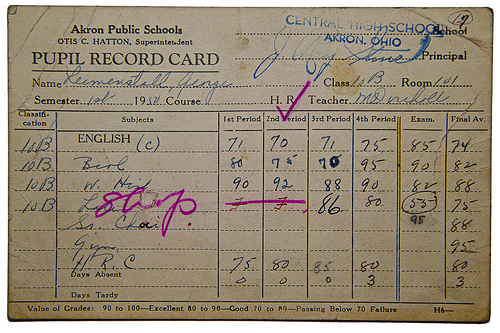 Akron Public Schools
OTIS C. HATTON, Superintendent
CENTRAL HIGH SCHOOL School
AKRON, OHIO
Principal
PUPIL RECORD CARD
Name George Class 10B Room 101
Semester 1st 1950 Course H. R. Teacher
Classification Subjects 1st Period 2nd Period 3rd Period 4th Period Exam. Final Av.
10B ENGLISH (C) 71 70 71 75 85 74
10B Biol 80 75 70 95 90 82
10B W. His 90 92 88 90 82 88
10B F F 86 80 55 75
Shop. 95
Sr. Choir 88
Gym 95
H R C 75 80 85 80 80
Days Absent 0 0 0 3 3
Days Tardy
Value of Grades: 90 to 100—Excellent 80 to 90—Good 70 to 80—Passing Below 70 Failure H6—